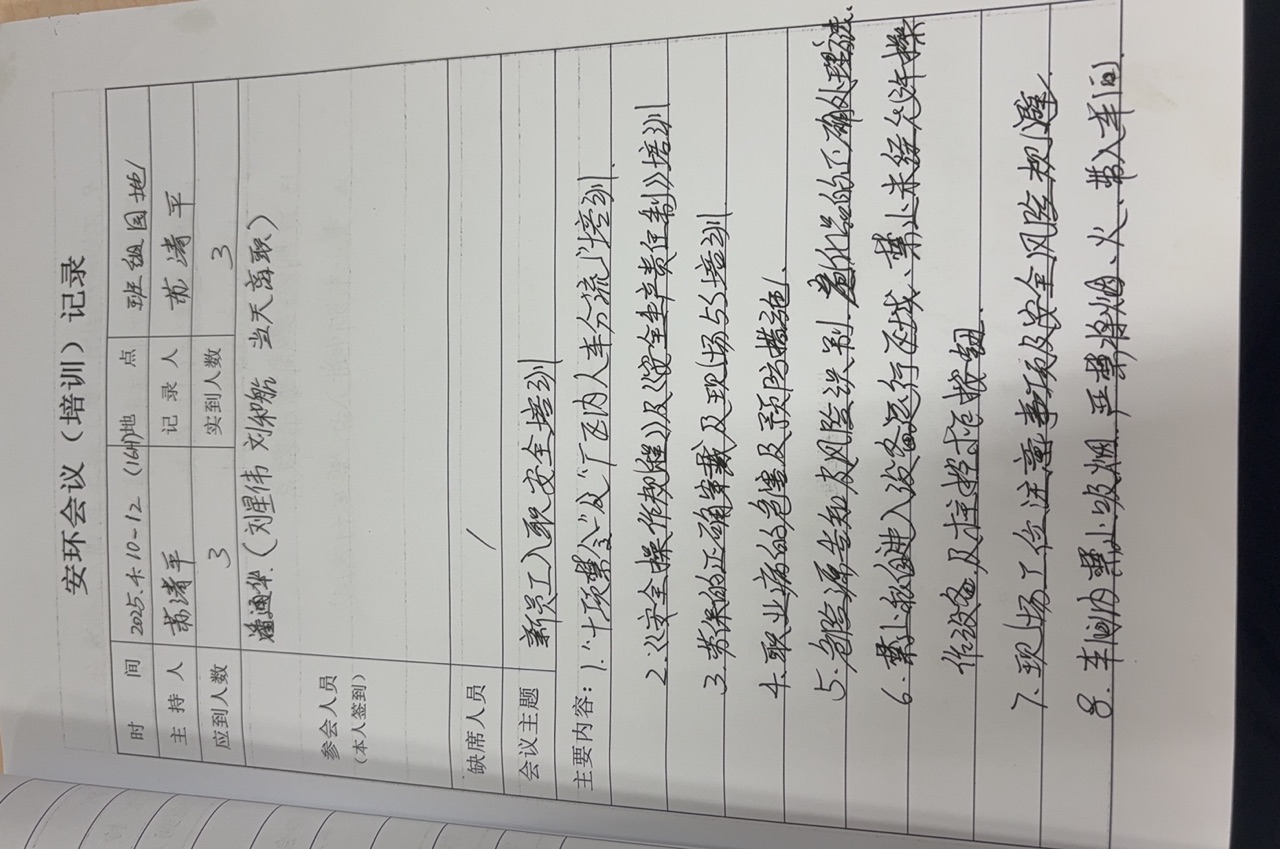 安环会议（培训）记录
时 间 2025.4.10-12 (16H) 地 点 班组园地
主 持 人 苏涛平 记 录 人 苏涛平
应到人数 3 实到人数 3
参会人员 潘通坐.（刘星伟 刘和航 当天离职）
（本人签到）
缺席人员 /
会议主题 新员工入职安全培训
主要内容：1."十项禁令"及"厂区内人车分流"培训.
2.《安全操作规程》及《安全生产责任制》培训
3.劳保的正确穿戴及现场5S培训
4.职业病的危害及预防措施.
5.危险源告知及风险识别.危化品的正确处理方法.
6.禁止私自进入设备运行区域、禁止未经允许操
作设备及存按钮.
7.现场工位注意事项及安全风险规避.
8.车间内禁止吸烟.严禁将烟、火、带入车间